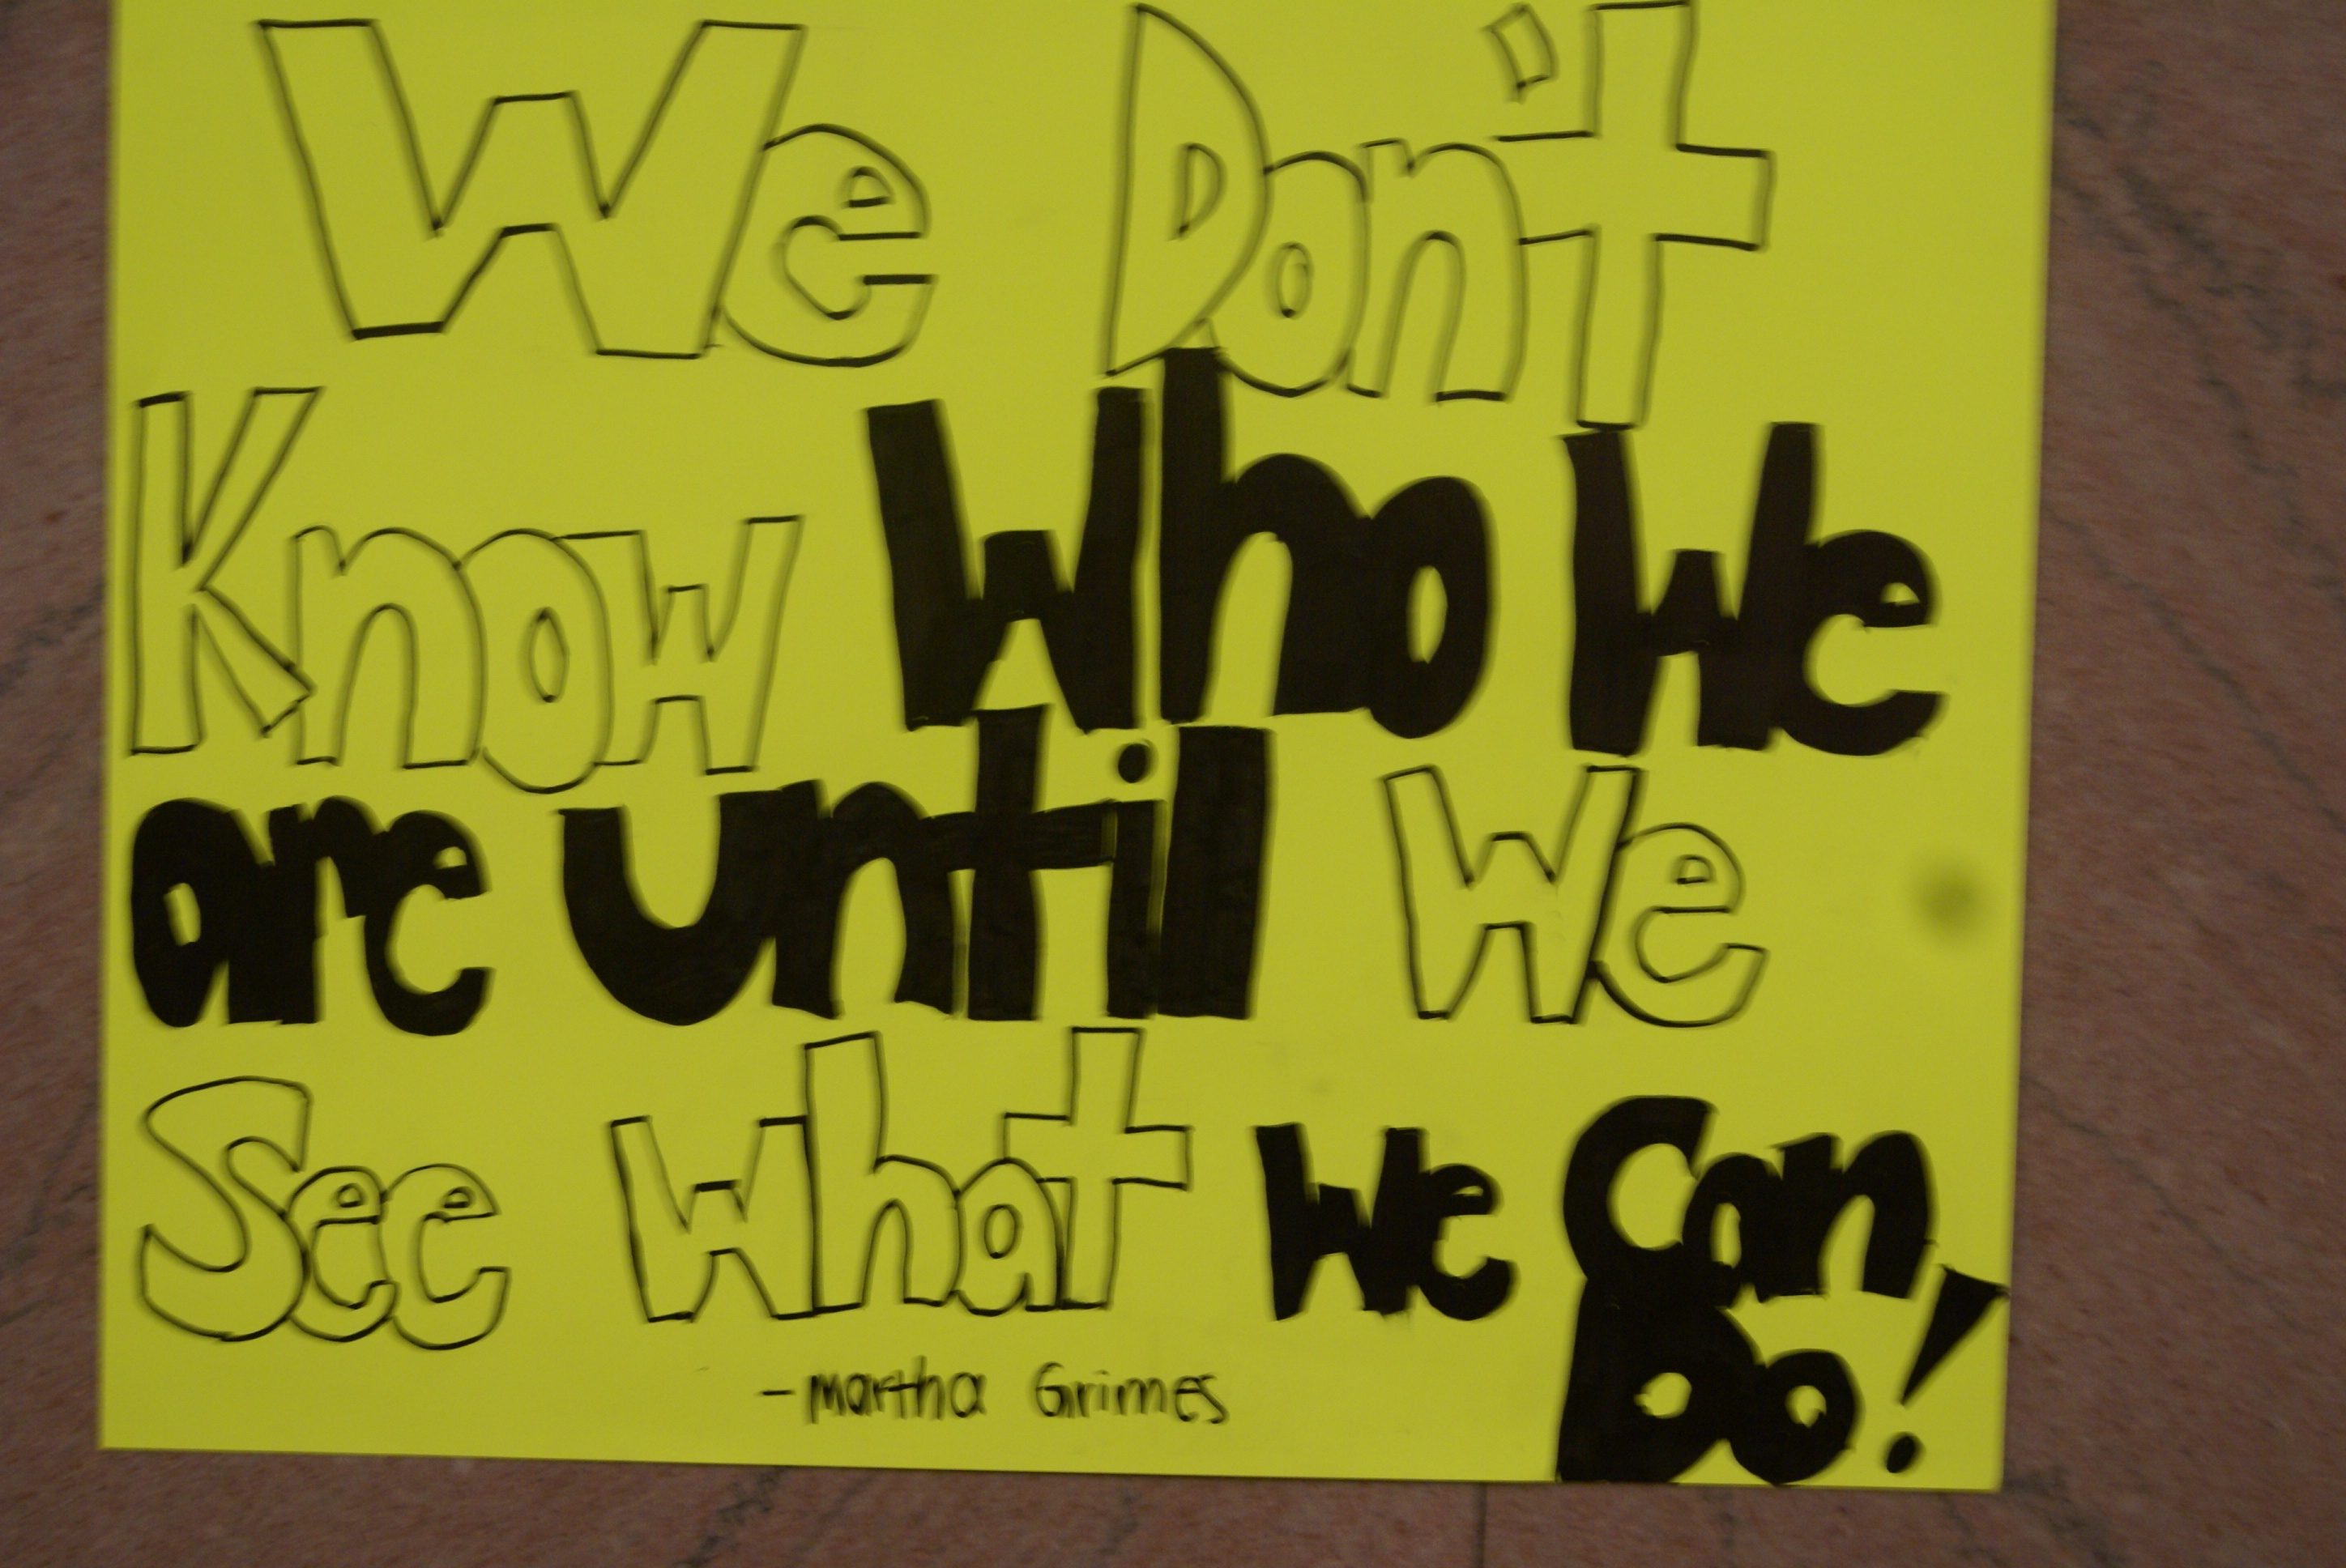 We Don't
Know Who We
are until We
See What We Can
Do!
-Martha Grimes